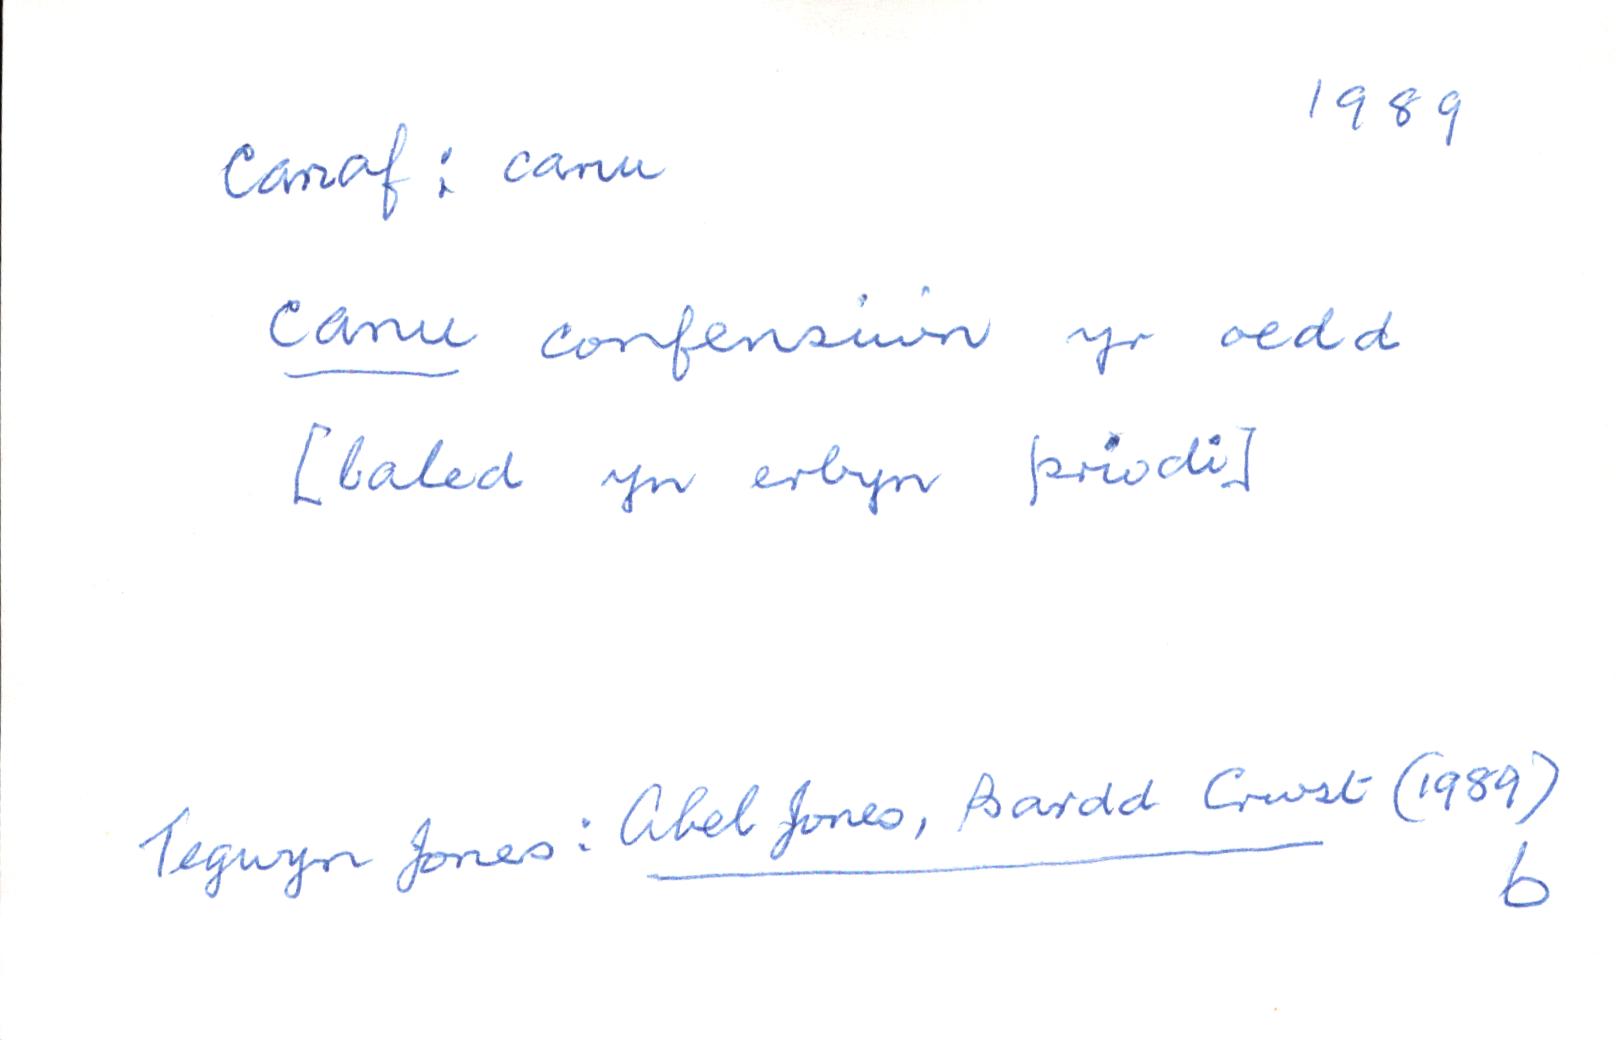 1989
Canaf: canu
canu confensiwn yr oedd
[baled yn erbyn priodi]
Tegwyn Jones: Abel Jones, Bardd Crwst (1989)
6